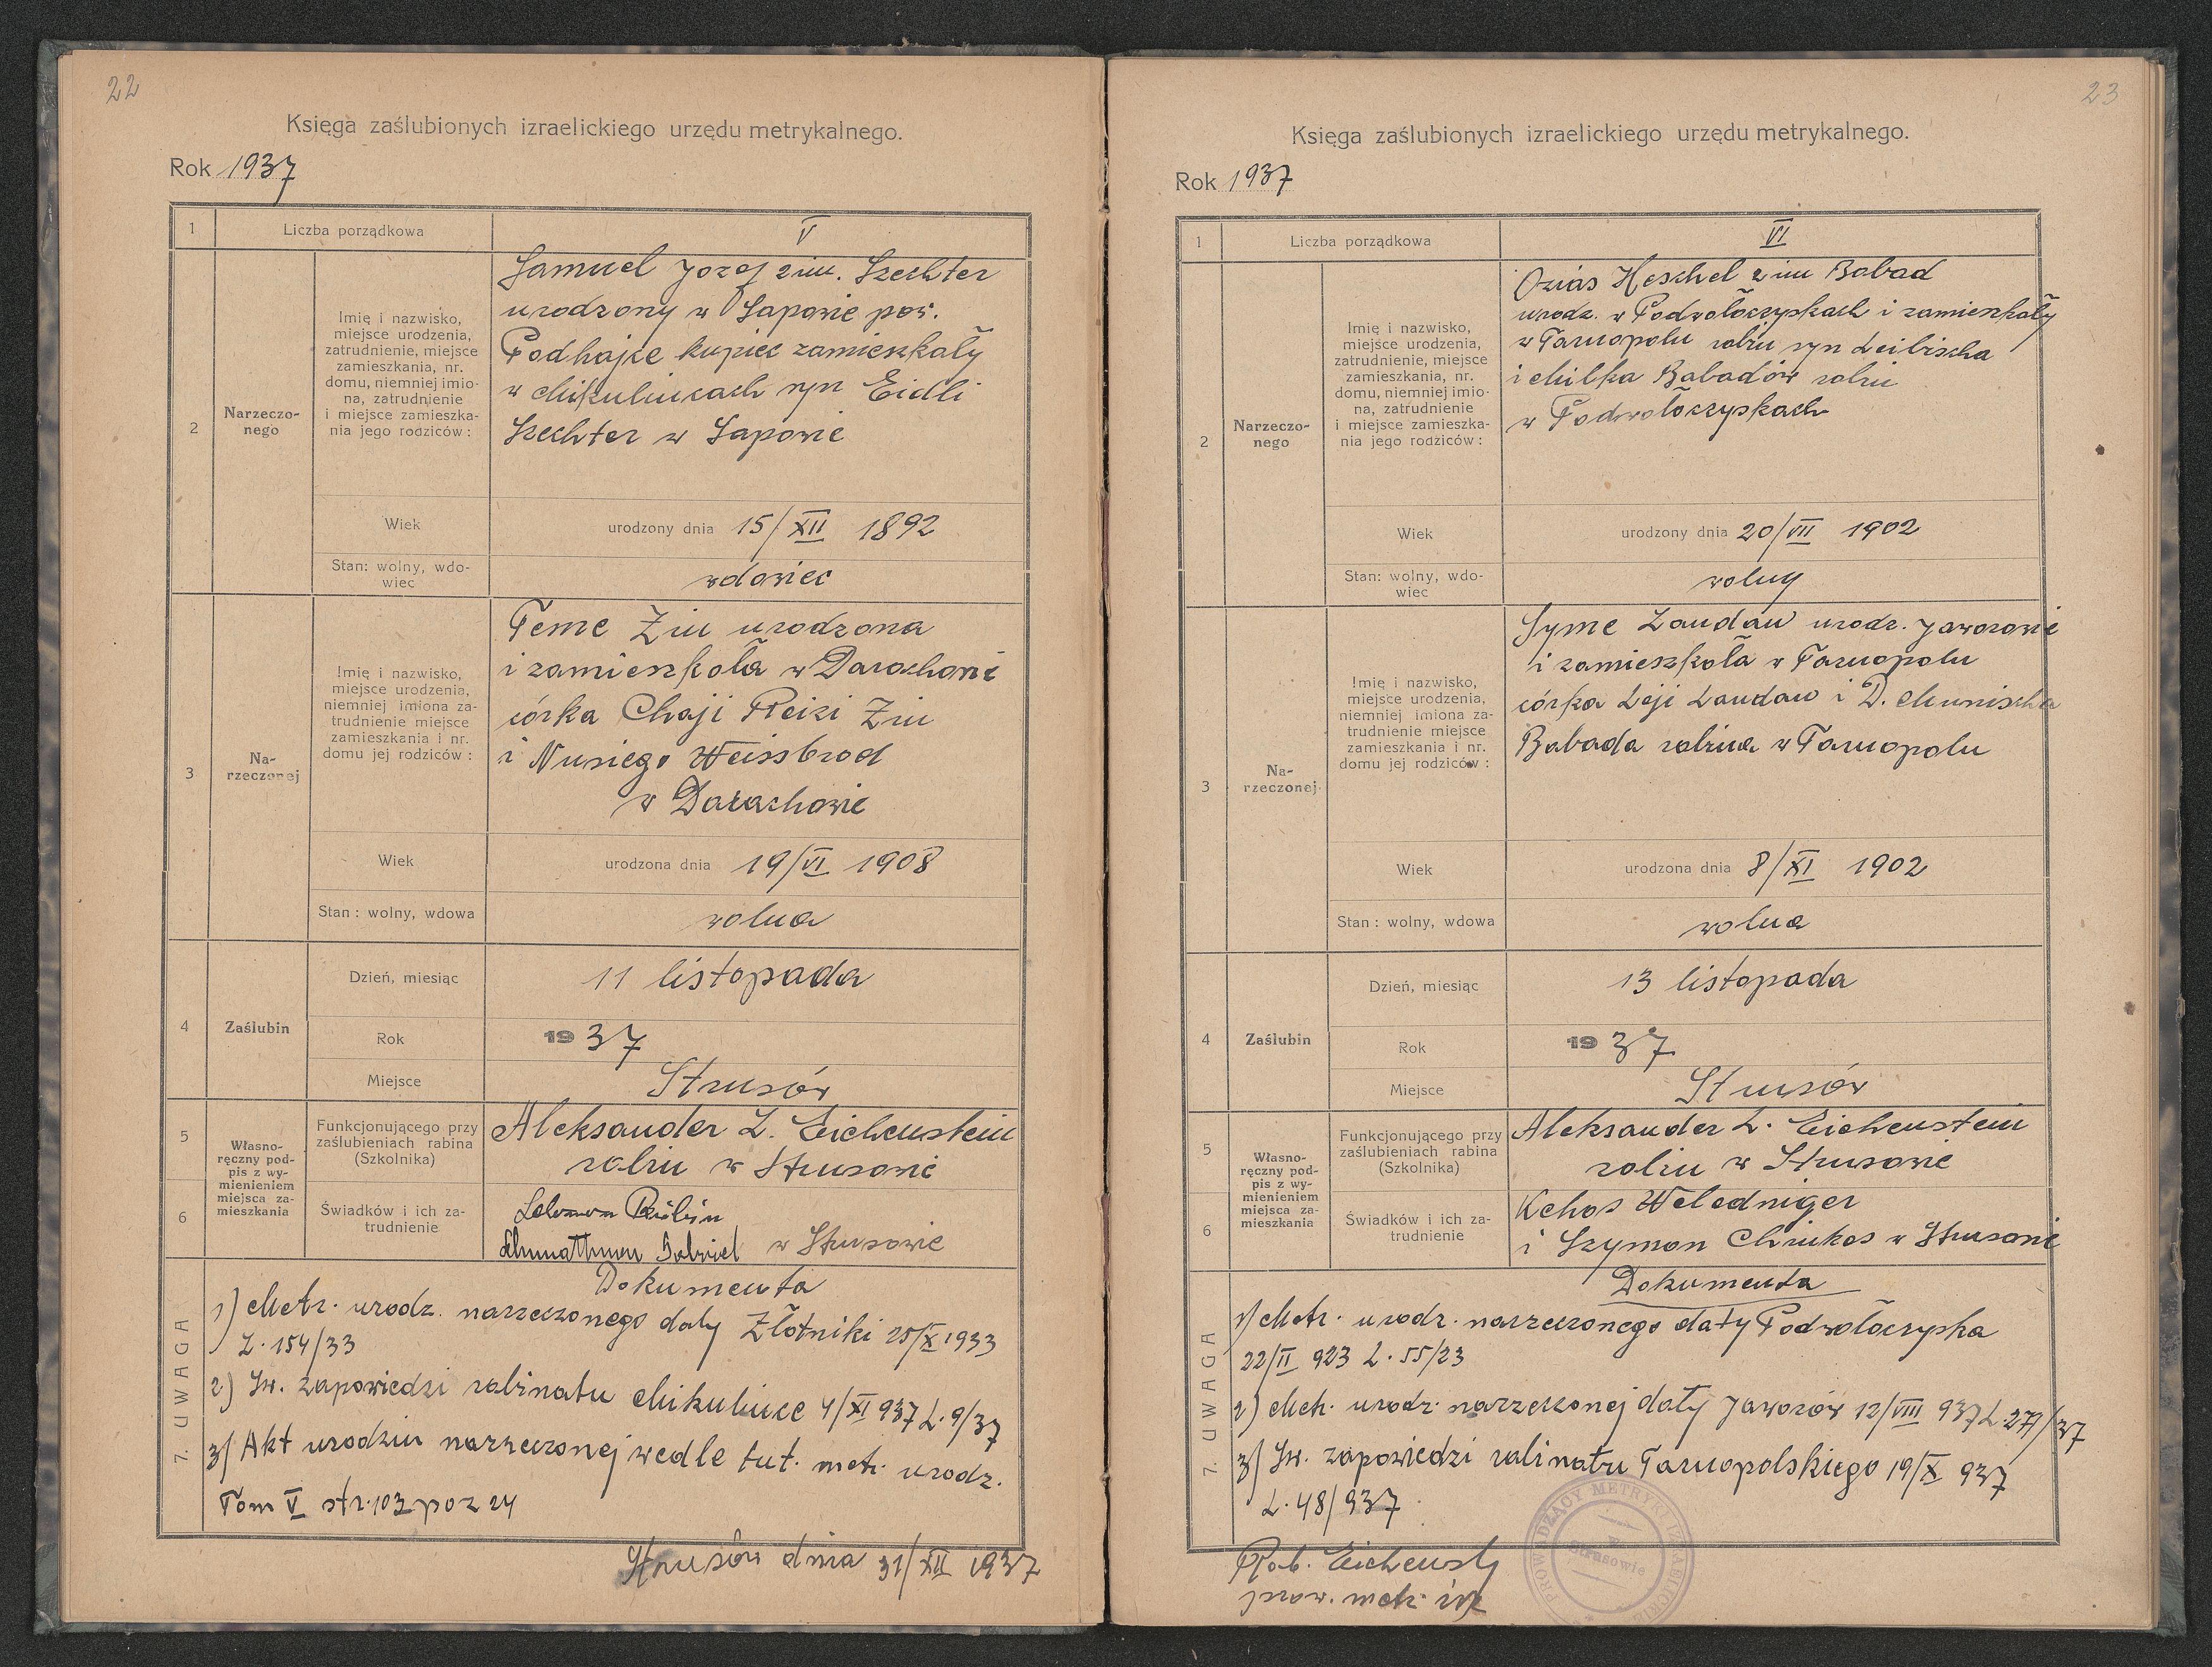 22
Księga zaślubionych izraelickiego urzędu metrykalnego.
Rok 1937
1
Liczba porządkowa
V
2
Narzeczo-
nego
Imię i nazwisko,
miejsce urodzenia,
zatrudnienie, miejsce
zamieszkania, nr.
domu, niemniej imio-
na, zatrudnienie
i miejsce zamieszka-
nia jego rodziców:
Samuel Józef 2 im. Szechter
urodzony w Saponie pow.
Podhajce kupiec zamieszkały
w Mikulincach syn Eidli
Szechter w Saponie
Wiek
urodzony dnia 15/XII 1892
Stan: wolny, wdo-
wiec
wdowiec
3
Na-
rzeczonej
Imię i nazwisko,
miejsce urodzenia,
niemniej imiona za-
trudnienie miejsce
zamieszkania i nr.
domu jej rodziców:
Teme Zin urodzona
i zamieszkoła w Darachowie
córka Chaji Reizi Zin
i Nusiego Weissbrod
w Darachowie
Wiek
urodzona dnia 19/VI 1908
Stan: wolny, wdowa
wolna
4
Zaślubin
Dzień, miesiąc
11 listopada
Rok
1937
Miejsce
Strusów
5
Własno-
ręczny pod-
pis z wy-
mienieniem
miejsca za-
mieszkania
Funkcjonującego przy
zaślubieniach rabina
(Szkolnika)
Aleksander L. Eichenstein
rabin w Strusowie
6
Świadków i ich za-
trudnienie
w Strusowie
7. UWAGA
Dokumenta
1) Metr. urodz. narzeczonego daty Złotniki 25/X 1933
L. 154/33
2) Św. zapowiedzi rabinatu Mikulince 4/XI 937 L. 9/37
3) Akt urodzin narzeczonej wedle tut. metr. urodz.
Tom V str. 103 poz 24
Strusów dnia 31/XII 1937
23
Księga zaślubionych izraelickiego urzędu metrykalnego.
Rok 1937
1
Liczba porządkowa
VI
2
Narzeczo-
nego
Imię i nazwisko,
miejsce urodzenia,
zatrudnienie, miejsce
zamieszkania, nr.
domu, niemniej imio-
na, zatrudnienie
i miejsce zamieszka-
nia jego rodziców:
Ozias Heschel 2 im Babad
urodz. w Podwołoczyskach i zamieszkały
w Tarnopolu rabin syn Leibischa
i Milka Babadów rabin
w Podwołoczyskach
Wiek
urodzony dnia 20/VII 1902
Stan: wolny, wdo-
wiec
wolny
3
Na-
rzeczonej
Imię i nazwisko,
miejsce urodzenia,
niemniej imiona za-
trudnienie miejsce
zamieszkania i nr.
domu jej rodziców:
Syme Landau urodz. Jaworowie
i zamieszkoła w Tarnopolu
córka Leji Landau i D. Munischa
Babada rabina w Tarnopolu
Wiek
urodzona dnia 8/XI 1902
Stan: wolny, wdowa
wolna
4
Zaślubin
Dzień, miesiąc
13 listopada
Rok
1937
Miejsce
Strusów
5
Własno-
ręczny pod-
pis z wy-
mienieniem
miejsca za-
mieszkania
Funkcjonującego przy
zaślubieniach rabina
(Szkolnika)
Aleksander L. Eichenstein
rabin w Strusowie
6
Świadków i ich za-
trudnienie
Kehos Weledniger
i Szymon Chinkes w Strusowie
7. UWAGA
Dokumenta
1) Metr. urodz. narzeczonego daty Podwołoczyska
22/II 923 L. 55/23
2) Metr. urodz. narzeczonej daty Jaworów 12/VIII 937 L. 277/37
3) Św. zapowiedzi rabinatu Tarnopolskiego 19/X 937
L. 48/937
Rab. Eichenst
prow. metr. izr
PROWADZĄCY METRYKI IZRAELICKIE
w Strusowie